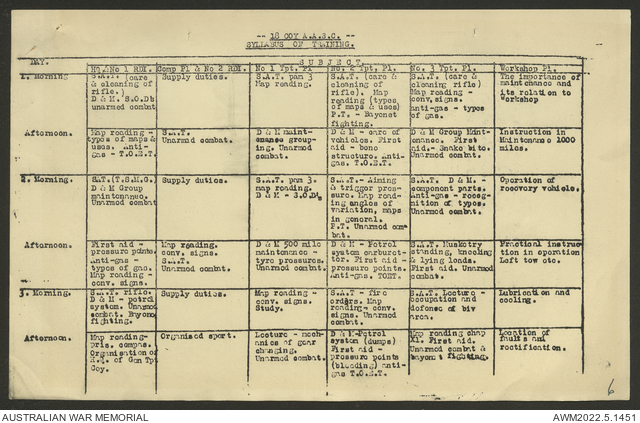 -- 18 COY A.A.S.C. --
SYLLABUS OF TRAINING.
DAY.
SUBJECT
Hq.& No 1 RDI.
Comp Pl & No 2 RDI.
No 1 Tpt. Pl
No. 2 Tpt. Pl.
No. 3 Tpt. Pl.
Workshop Pl.
1. Morning
S.A.T. (care
& cleaning of
rifle.)
D & M. S.O.D's
unarmed combat
Supply duties.
S.A.T. pam 3
Map reading.
S.A.T. (care &
cleaning of
rifle). Map
reading (types
of maps & uses)
P.T. - Bayonet
fighting.
S.A.T. (care &
cleaning rifle)
Map reading -
conv. signs.
Anti-gas - types
of gas.
The importance of
maintenance and
its relation to
Workshop
Afternoon.
Map reading -
types of maps &
uses. Anti-
gas - T.O.E.T.
S.A.T.
Unarmed combat.
D & M maint-
enance group-
ing. Unarmed
combat.
D & M - care of
vehicles. First
aid - bone
structure. Anti-
gas. T.O.E.T.
D & M Group Main-
tenance. First
aid.- Snake bite.
Unarmed combat.
Instruction in
Maintenance 1000
miles.
2. Morning.
S.A.T. (T.S.M.G.)
D & M Group
maintenance.
Unarmed combat
Supply duties.
S.A.T. pam 3.
map reading.
D & M - S.O.D's
S.A.T. - Aiming
& trigger pres-
sure. Map read-
ing angles of
variation, maps
in general.
P.T. Unarmed com-
bat.
S.A.T. D & M. -
component parts.
Anti-gas - recog-
nition of types.
Unarmed combat.
Operation of
recovery vehicle.
Afternoon
First aid -
pressure points.
Anti-gas -
types of gas.
Map reading -
conv. signs.
Map reading.
conv. signs.
S.A.T.
Unarmed combat.
D & M 500 mile
maintenance -
tyre pressures.
Unarmed combat.
D & M - Petrol
system carburet-
tor. First aid -
pressure points.
Anti-gas. TOET.
S.A.T. Musketry
standing, kneeling
& lying loads.
First aid. Unarmed
combat
Practical instruc-
tion in operation
Left tow etc.
3. Morning.
S.A.T. rifle.
D & M - petrol
system. Unarmed
combat. Bayonet
fighting.
Supply duties.
Map reading -
conv. signs.
Study.
S.A.T - fire
orders. Map
reading- conv.
signs. Unarmed
combat.
S.A.T. Lecture -
occupation and
defence of biv
area.
Lubrication and
cooling.
Afternoon.
Map reading-
pris. compas.
Organisation of
H.Q. of Gen Tpt
Coy.
Organised sport.
Lecture - mech-
anics of gear
changing.
Unarmed combat.
D & M-Petrol
system (dumps)
First aid-
pressure points
(bleeding) anti-
gas T.O.E.T.
Map reading chap
X1. First aid.
Unarmed combat &
bayonet fighting.
Location of
faults and
rectification.
6
AUSTRALIAN WAR MEMORIAL
AWM2022.5.1451